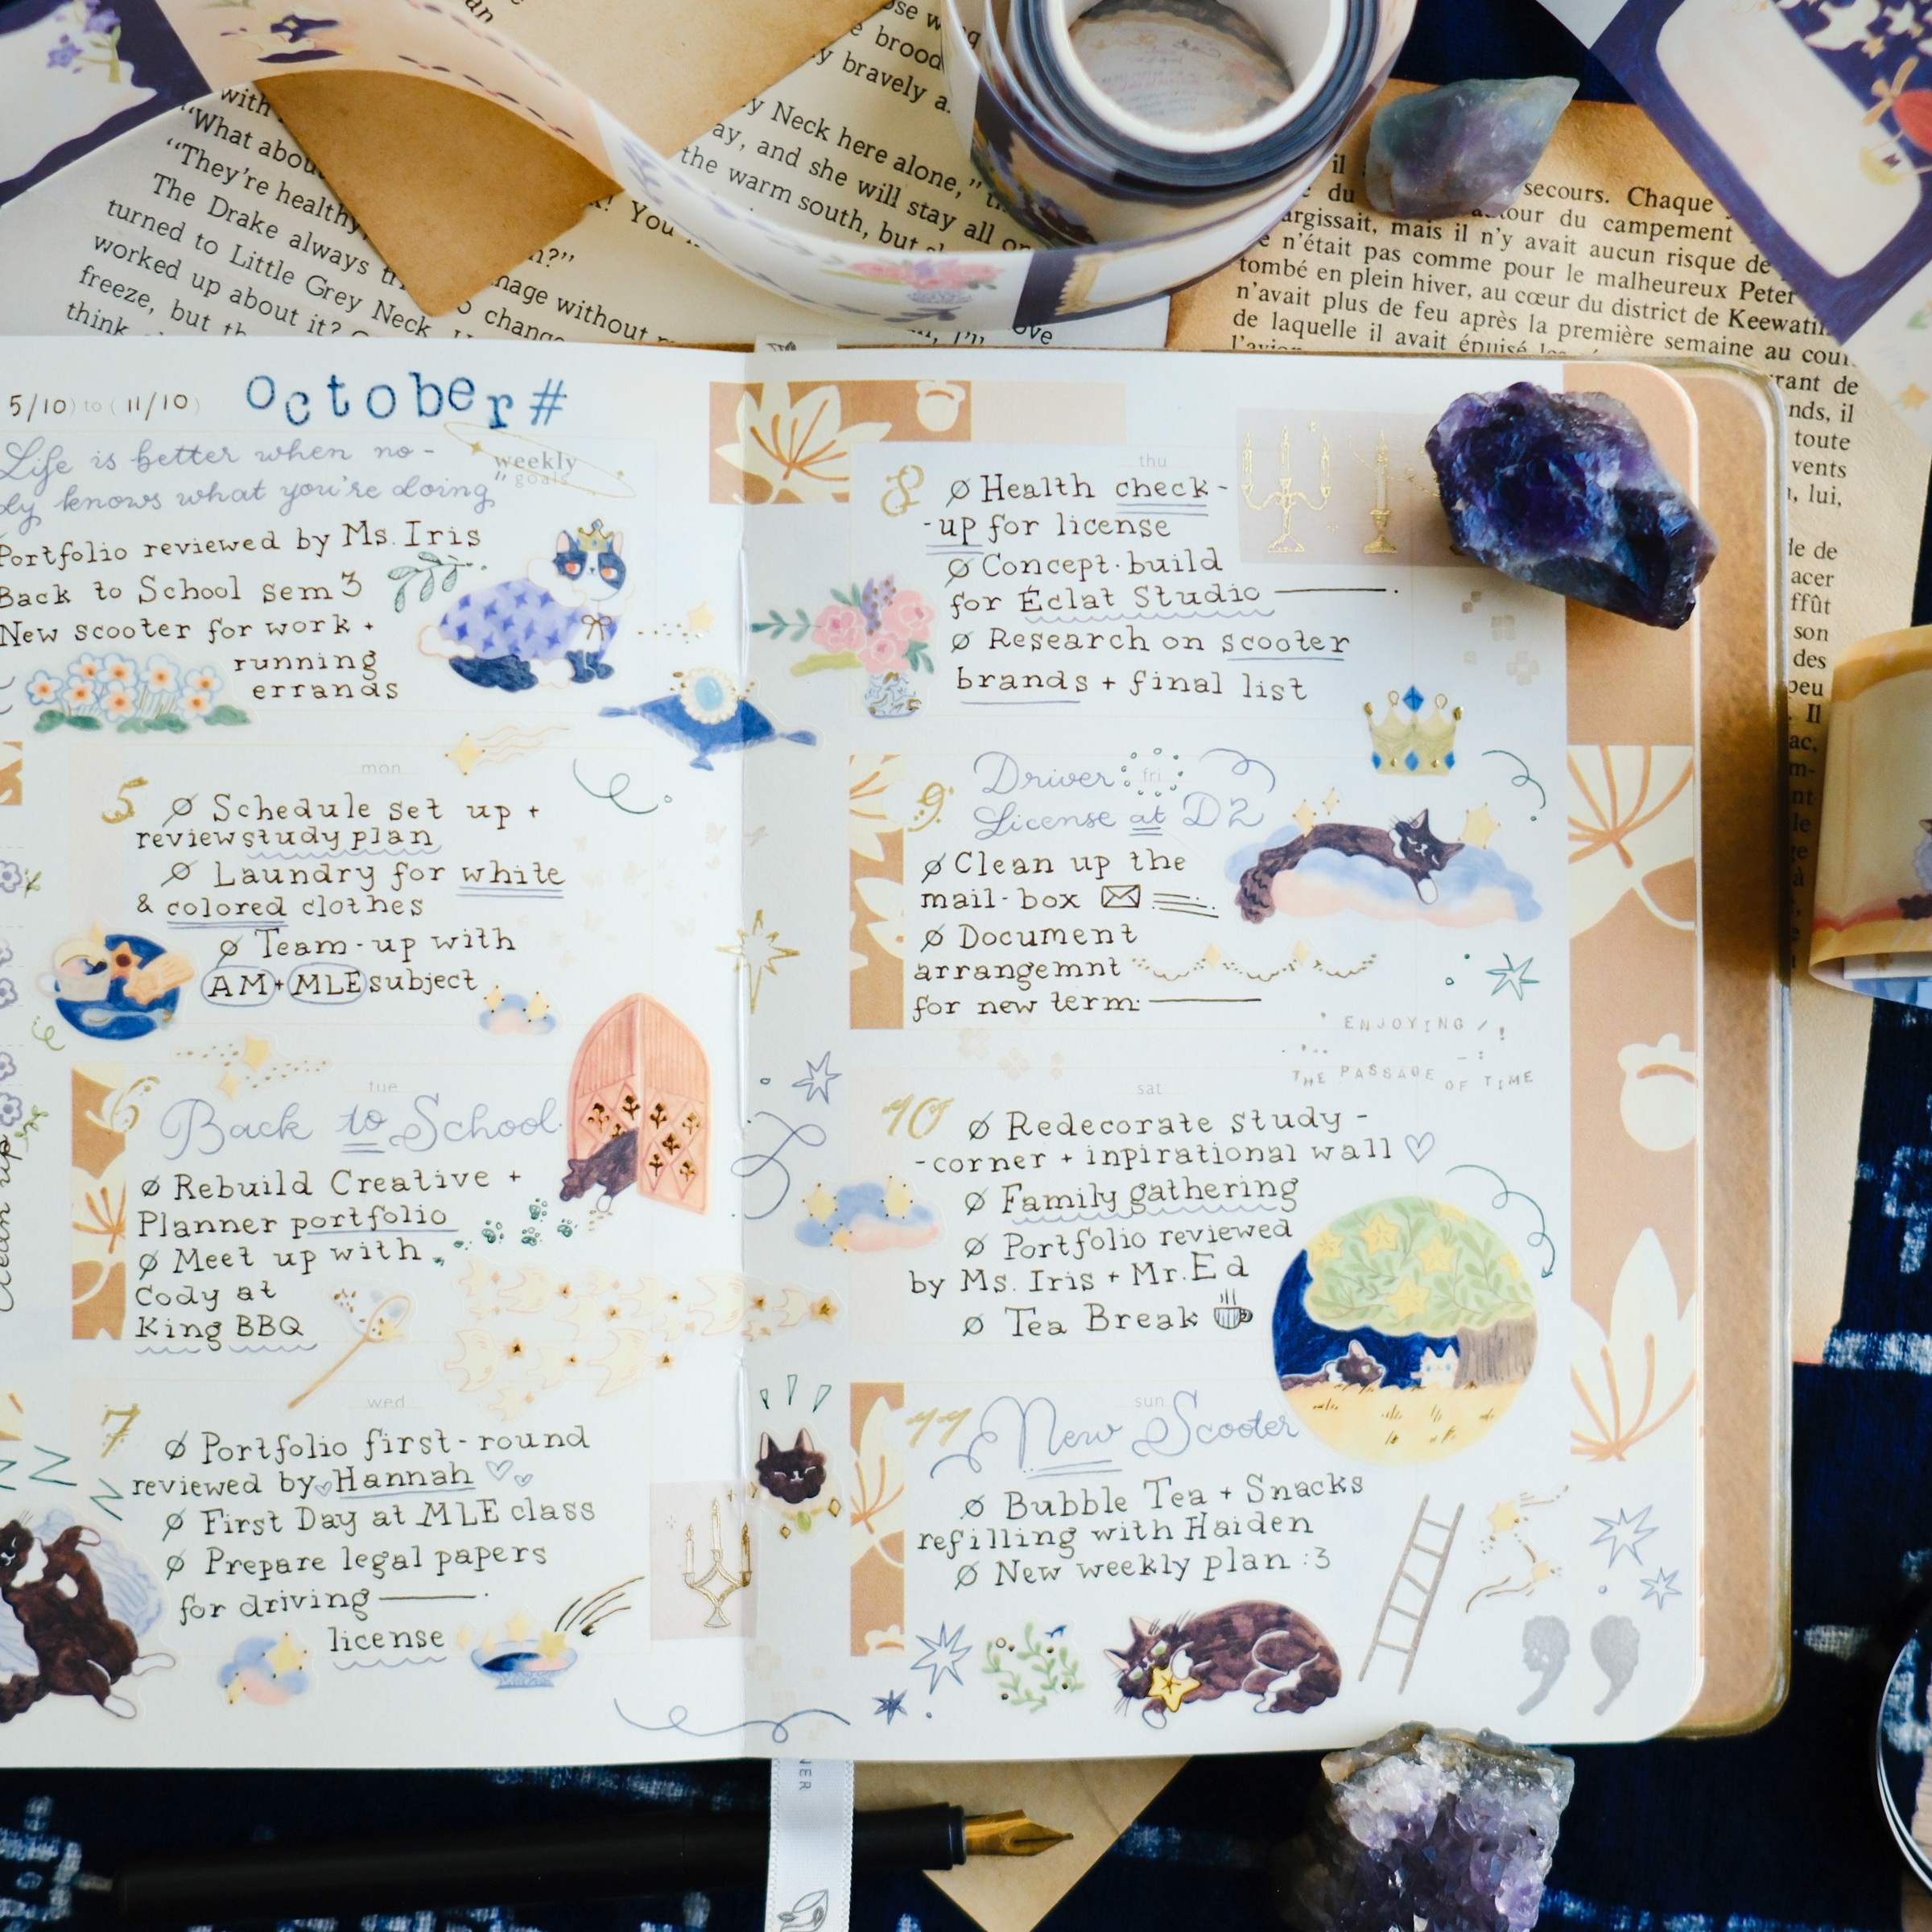 with
"What about
"They're healthy,
The Drake always
turned to Little Grey Neck.
worked up about it?
freeze, but
think
?"
change
without
! You
an
brood
y bravely a
y Neck here alone,"
ay, and she will stay all
the warm south, but
il
du
secours. Chaque
autour du campement
argissait, mais il n'y avait aucun risque de
n'était pas comme pour le malheureux Peter
tombé en plein hiver, au cœur du district de Keewatin
n'avait plus de feu après la première semaine au cour
de laquelle il avait épuisé
l'avion
rant de
nds, il
toute
vents
, lui,
de de
acer
ffût
son
des
peu
Il
5/10) to ( 11/10 )
october#
Life is better when no-
dy knows what you're doing"
weekly
goals
Portfolio reviewed by Ms. Iris
Back to School sem 3
New scooter for work +
running
errands
mon
5 Ø Schedule set up +
review study plan
Ø Laundry for white
& colored clothes
Ø Team-up with
AM + MLE subject
tue
6 Back to School.
Ø Rebuild Creative +
Planner portfolio
Ø Meet up with
Cody at
King BBQ
Clean up
wed
7 Ø Portfolio first-round
reviewed by Hannah
Ø First Day at MLE class
Ø Prepare legal papers
for driving
license
thu
8 Ø Health check-
-up for license
Ø Concept·build
for Éclat Studio
Ø Research on scooter
brands + final list
fri
9 Driver
License at D2
Ø Clean up the
mail-box
Ø Document
arrangemnt
for new term
ENJOYING
THE PASSAGE OF TIME
sat
10 Ø Redecorate study-
-corner + inpirational wall
Ø Family gathering
Ø Portfolio reviewed
by Ms. Iris + Mr. Ed
Ø Tea Break
sun
11 New Scooter
Ø Bubble Tea + Snacks
refilling with Haiden
Ø New weekly plan :3
NER